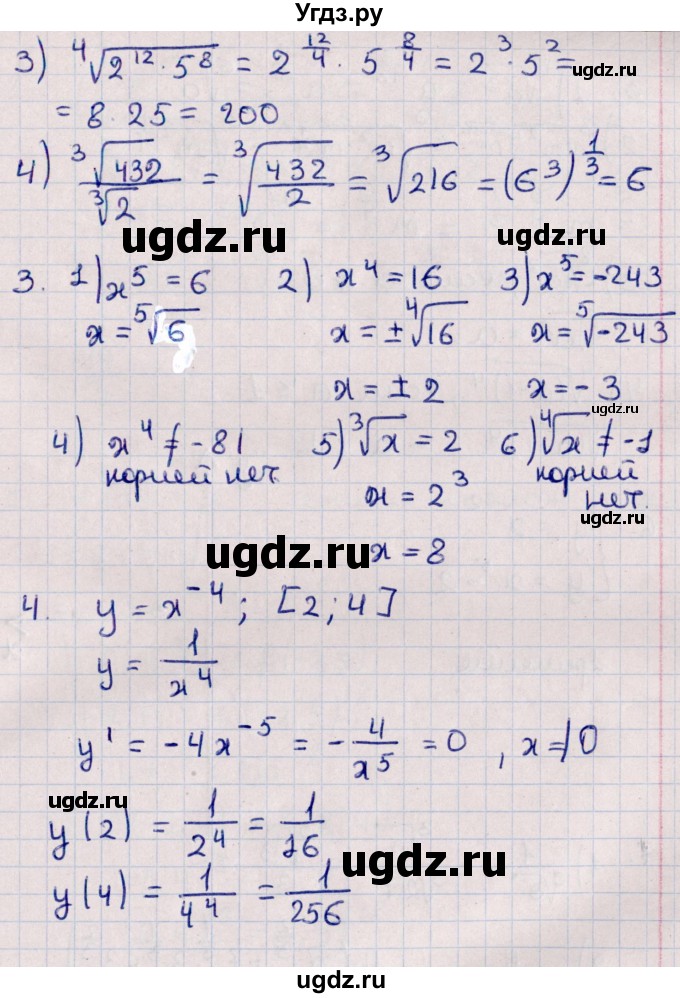 Угдз.ру
3) ⁴√(2¹² · 5⁸) = 2^(12/4) · 5^(8/4) = 2³ · 5² =
ugdz.ru
= 8 · 25 = 200
4) ³√432 / ³√2 = ³√(432/2) = ³√216 = (6³)^(1/3) = 6
ugdz.ru
ugdz.ru
3. 1) x⁵ = 6 2) x⁴ = 16 3) x⁵ = -243
x = ⁵√6 x = ±⁴√16 x = ⁵√-243
x = ± 2 x = - 3
ugdz.ru
4) x⁴ ≠ - 81 5) ³√x = 2 6) ⁴√x ≠ -1
корней нет. x = 2³ корней
нет.
ugdz.ru
ugdz.ru
x = 8
4. y = x⁻⁴ ; [2; 4]
y = 1/x⁴
y' = -4x⁻⁵ = - 4/x⁵ = 0 , x ≠ 0
ugdz.ru
y(2) = 1/2⁴ = 1/16
ugdz.ru
y(4) = 1/4⁴ = 1/256
ugdz.ru